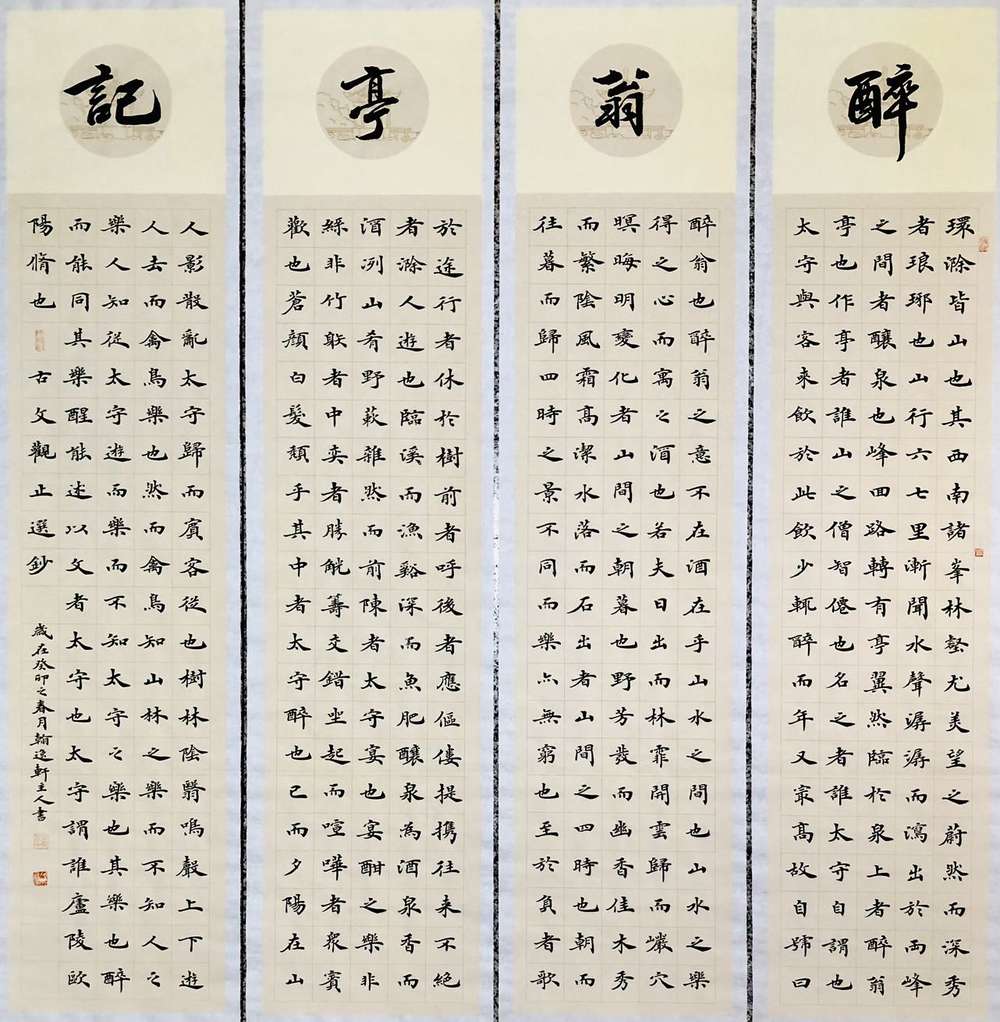 醉
翁
亭
記
環滁皆山也其西南諸峯林壑尤美望之蔚然而深秀
者琅琊也山行六七里漸聞水聲潺潺而瀉出於两峰
之間者釀泉也峰回路轉有亭翼然臨於泉上者醉翁
亭也作亭者誰山之僧智僊也名之者誰太守自謂也
太守與客來飲於此飲少輒醉而年又冣高故自號曰
醉翁也醉翁之意不在酒在乎山水之間也山水之樂
得之心而寓之酒也若夫日出而林霏開雲歸而巖穴
暝晦明變化者山間之朝暮也野芳發而幽香佳木秀
而繁陰風霜高潔水落而石出者山間之四時也朝而
往暮而歸四時之景不同而樂亦無窮也至於負者歌
於途行者休於樹前者呼後者應傴僂提携往来不絕
者滁人遊也臨溪而漁谿深而魚肥釀泉為酒泉香而
酒冽山肴野蔌雜然而前陳者太守宴也宴酣之樂非
絲非竹䠶者中奕者勝觥籌交錯坐起而喧嘩者衆賓
歡也蒼顏白髮頹乎其中者太守醉也已而夕陽在山
人影散亂太守歸而賓客從也樹林陰翳鳴聲上下遊
人去而禽鳥樂也然而禽鳥知山林之樂而不知人之
樂人知從太守遊而樂而不知太守之樂也其樂也醉
而能同其樂醒能述以文者太守也太守謂誰廬陵歐
陽脩也 古文觀止選鈔
歲在癸卯之春月翰逸軒主人書